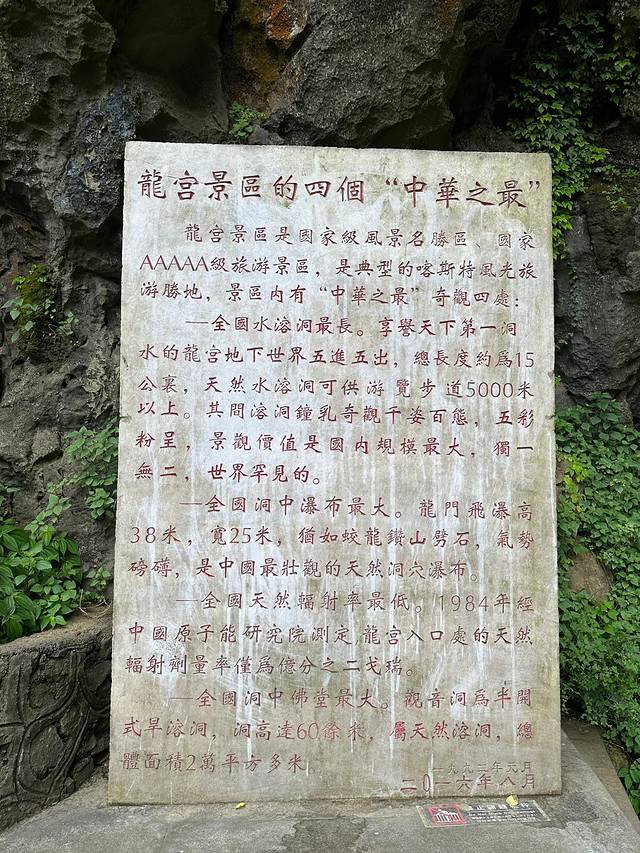 龍宮景區的四個“中華之最”
龍宮景區是國家級風景名勝區、國家
AAAAA級旅游景區，是典型的喀斯特風光旅
游勝地，景區内有“中華之最”奇觀四處：
—全國水溶洞最長。享譽天下第一洞
水的龍宮地下世界五進五出，總長度約爲15
公裏，天然水溶洞可供游覽步道5000米
以上。其間溶洞鐘乳奇觀千姿百態，五彩
粉呈，景觀價值是國内規模最大，獨一
無二，世界罕見的。
—全國洞中瀑布最大。龍門飛瀑高
38米，寬25米，猶如蛟龍鑽山劈石，氣勢
磅礴，是中國最壯觀的天然洞穴瀑布。
—全國天然輻射率最低。1984年經
中國原子能研究院測定,龍宮入口處的天然
輻射劑量率僅爲億分之二戈瑞。
—全國洞中佛堂最大。觀音洞爲半開
式旱溶洞，洞高達60餘米，屬天然溶洞，總
體面積2萬平方多米
一九九三年元月
二0一六年八月